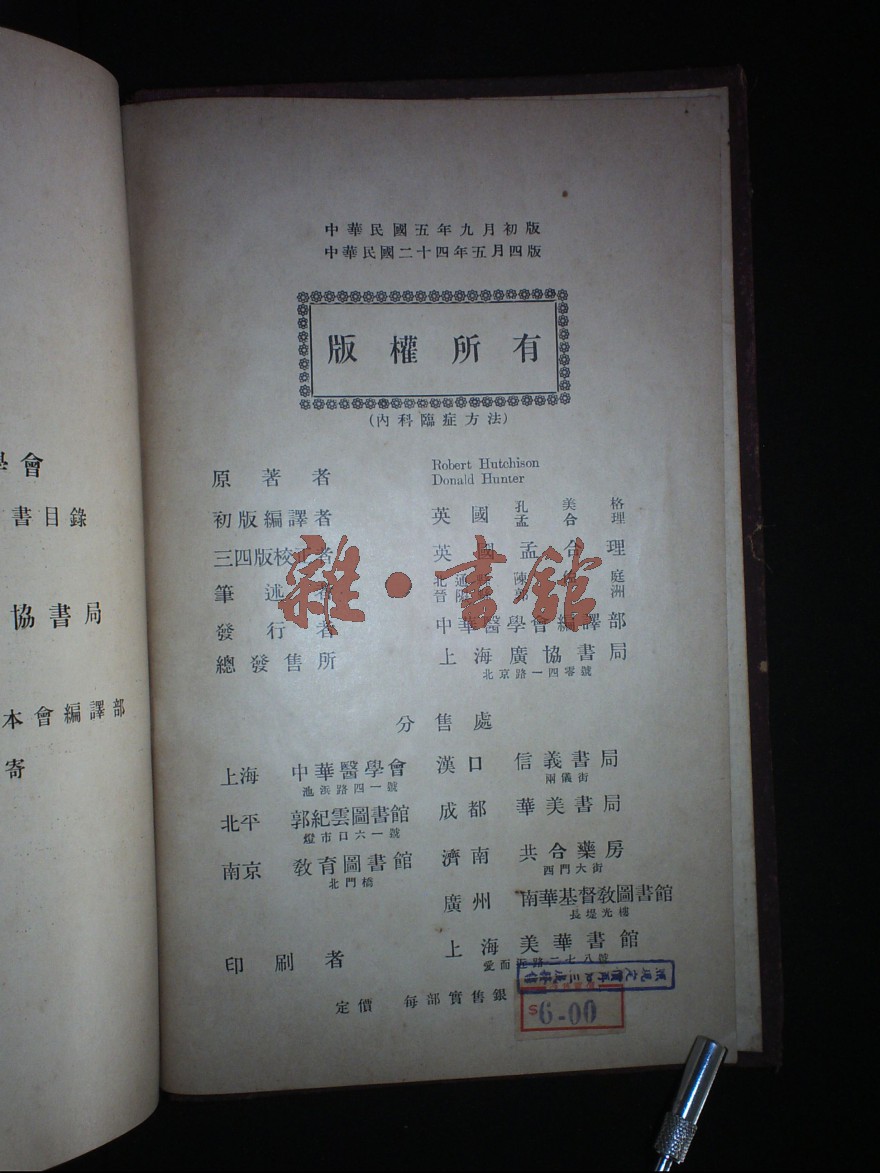 學會
書目錄
協書局
本會編譯部
寄
中華民國五年九月初版
中華民國二十四年五月四版
版權所有
(內科臨症方法)
原著者 Robert Hutchison
Donald Hunter
初版編譯者 英國 孔美格
孟合理
三四版校正者 英國孟合理
筆述者 北通州 陳 庭
晉陽 洲
發行者 中華醫學會編譯部
總發售所 上海廣協書局
北京路一四零號
分售處
上海 中華醫學會 漢口 信義書局
池浜路四一號 兩儀街
北平 郭紀雲圖書館 成都 華美書局
燈市口六一號
南京 教育圖書館 濟南 共合藥房
北門橋 西門大街
廣州 南華基督教圖書館
長堤光樓
印刷者 上海美華書館
愛而近路二七八號
定價 每部實售銀
$6.00
雜·書館